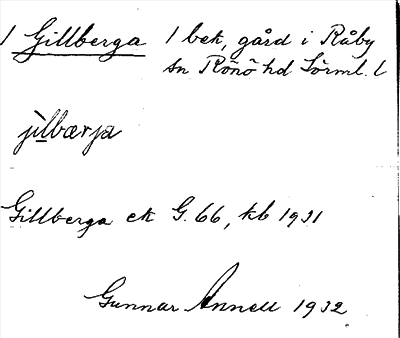 1 Gillberga 1 bek, gård i Råby
sn Rönö hd Sörml. l
jìlbærja
Gillberga ek G. 66, kb 1931
Gunnar Annell 1932